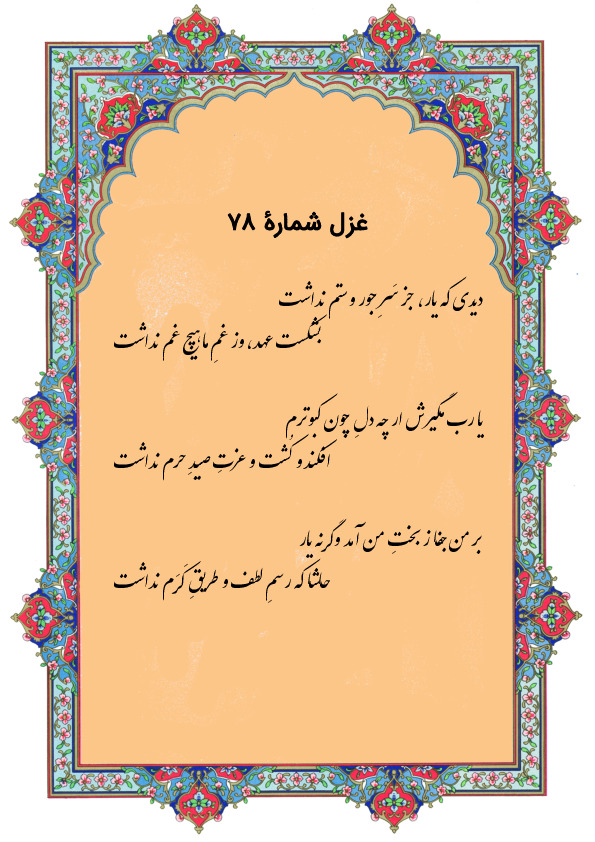 غزل شمارهٔ ۷۸
دیدی که یار، جز سَرِ جور و ستم نداشت
بشکست عهد، وز غمِ ما هیچ غم نداشت
یا رب مگیرش ار چه دلِ چون کبوترم
افکند و کُشت و عزتِ صیدِ حرم نداشت
بر من جفا ز بختِ من آمد وگرنه یار
حاشا که رسمِ لطف و طریقِ کَرَم نداشت